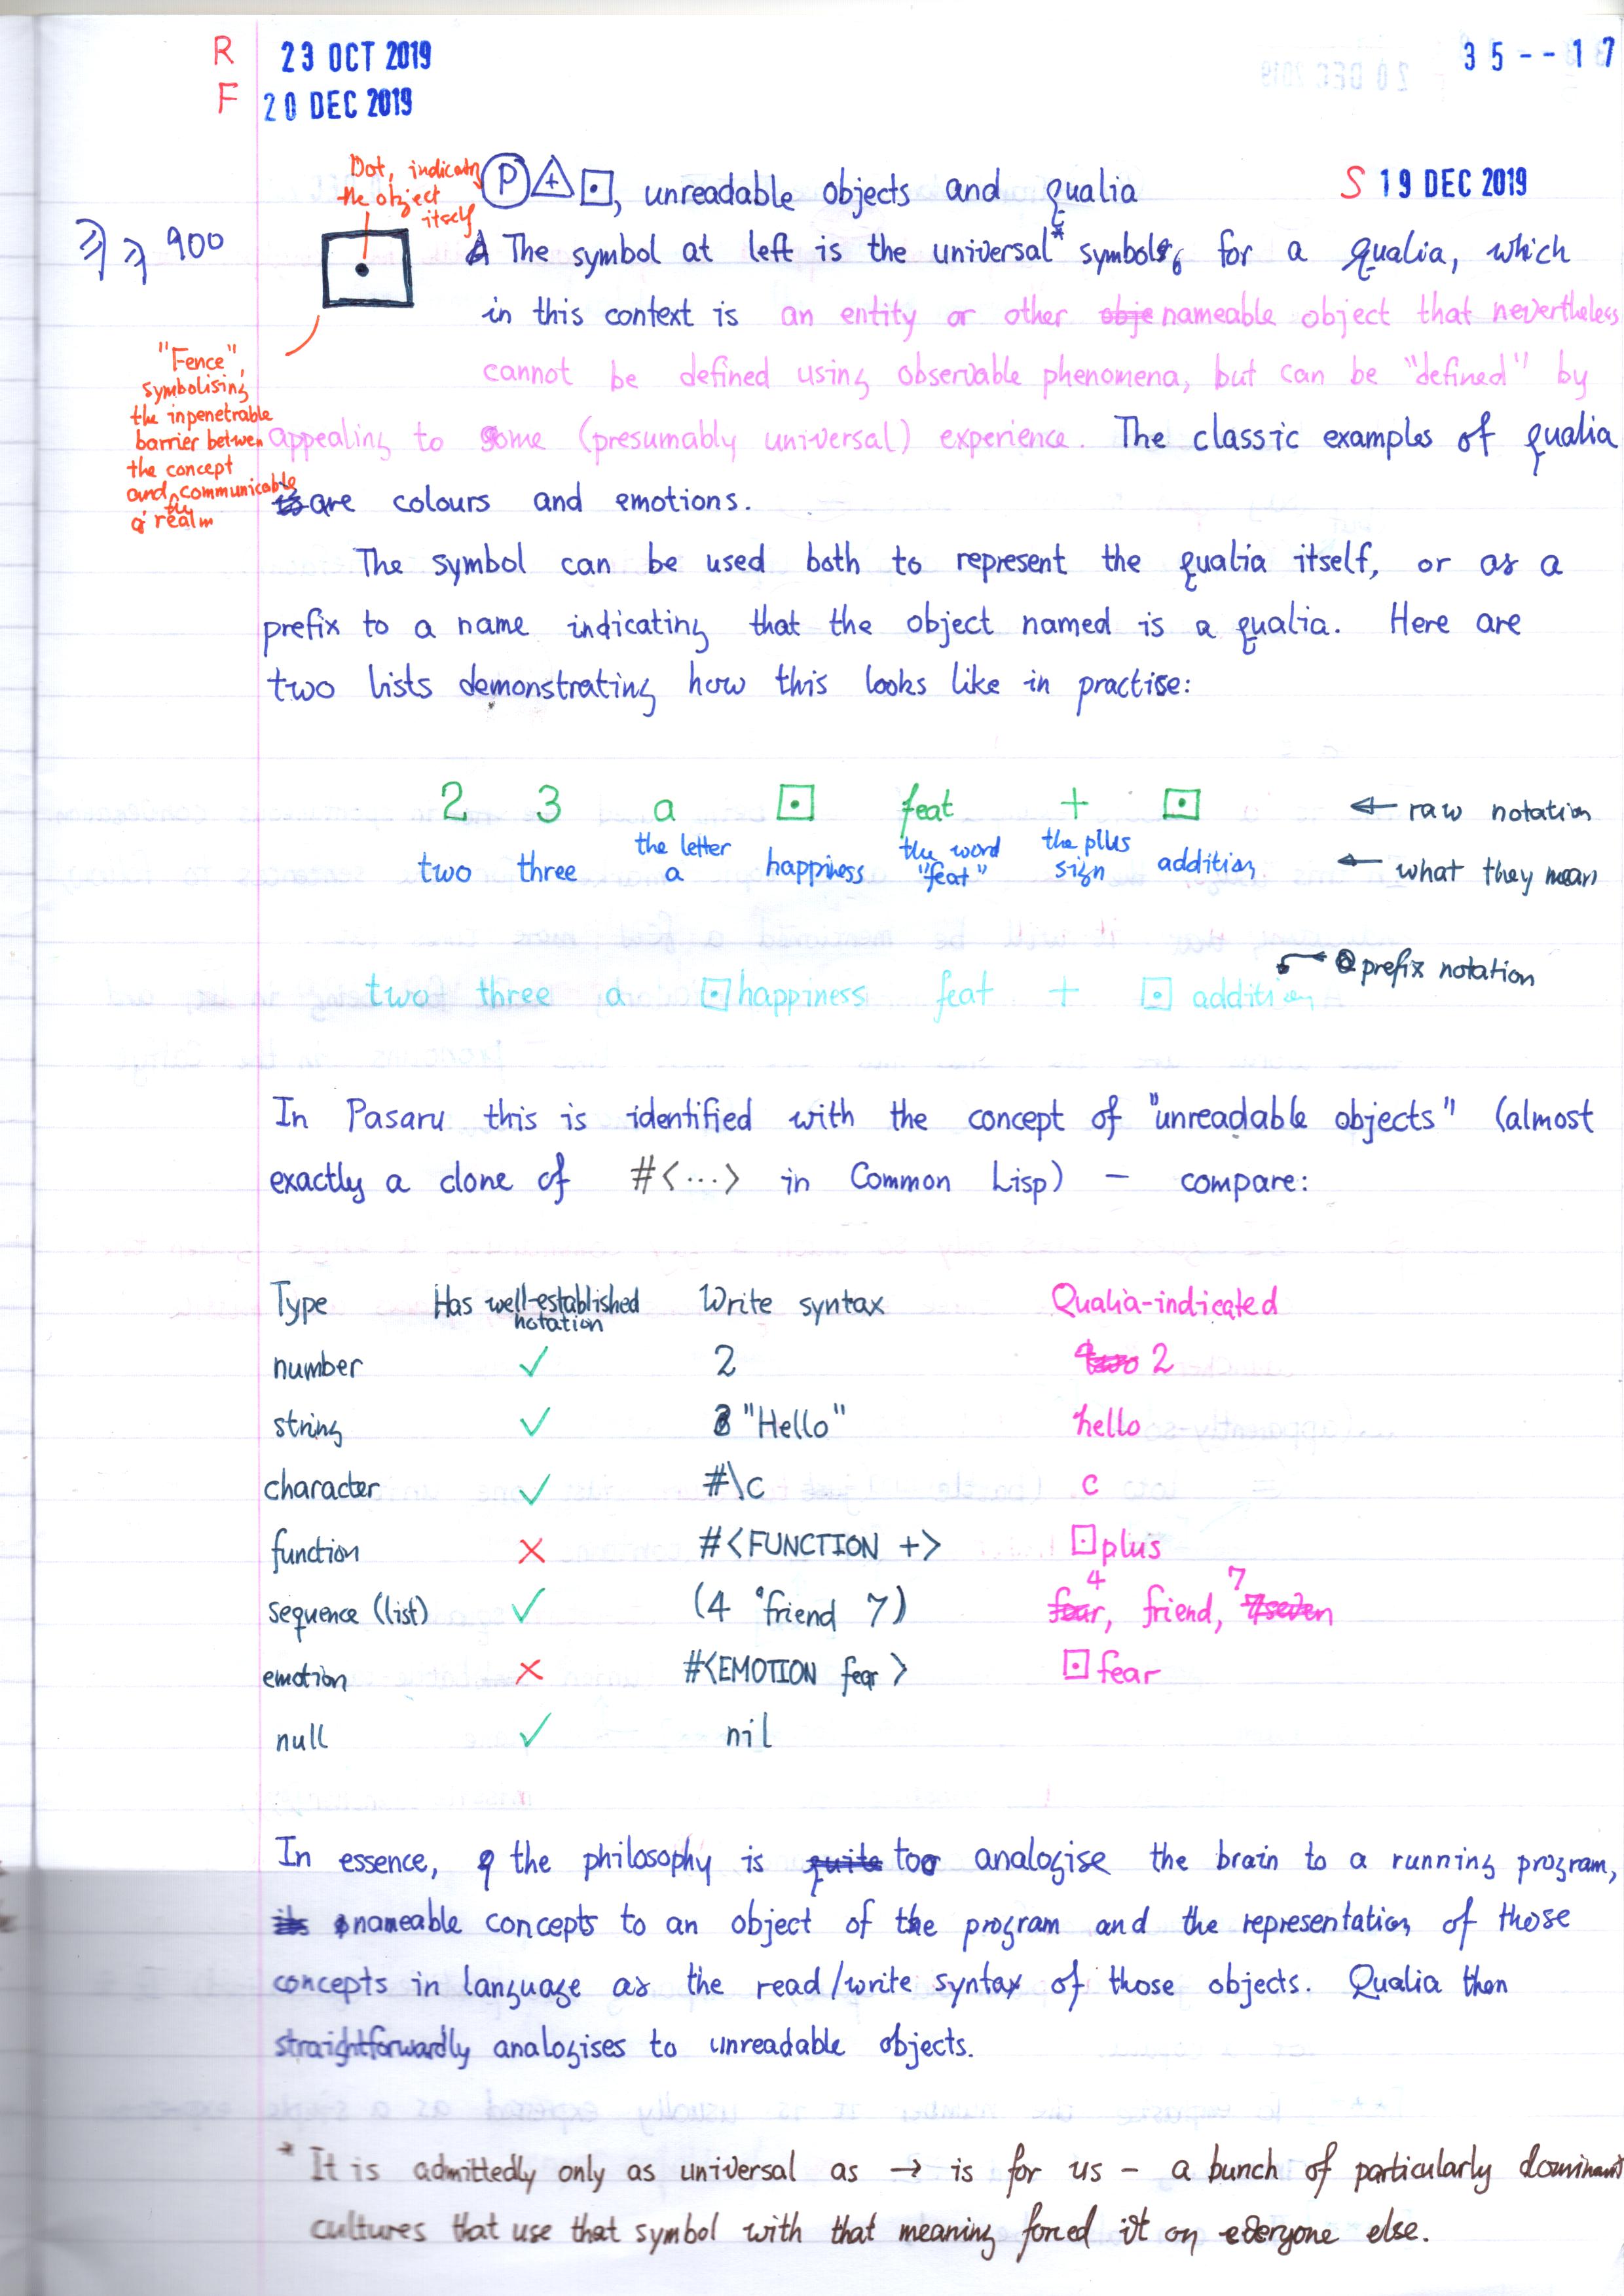 R 23 OCT 2019
35--17
F 20 DEC 2019
P + ⊡, unreadable objects and qualia
S 19 DEC 2019
Dot, indicatn
the object
itself
⩾ ⩾ 900
The symbol at left is the universal* symbol, for a qualia, which
in this context is an entity or other nameable object that nevertheless
cannot be defined using observable phenomena, but can be "defined" by
appealing to some (presumably universal) experience. The classic examples of qualia
are colours and emotions.
"Fence",
symbolising
the inpenetrable
barrier betwen
the concept
and communicable
realm
The symbol can be used both to represent the qualia itself, or as a
prefix to a name indicating that the object named is a qualia. Here are
two lists demonstrating how this looks like in practise:
2 3 a ⊡ feat + ⊡ ← raw notation
two three the letter a happiness the word "feat" the plus sign addition ← what they mean
prefix notation
two three a ⊡happiness feat + ⊡ addition
In Pasaru this is identified with the concept of "unreadable objects" (almost
exactly a clone of #<...> in Common Lisp) – compare:
Type Has well-established notation Write syntax Qualia-indicated
number ✓ 2 2
string ✓ "Hello" hello
character ✓ #\c c
function ✗ #<FUNCTION +> ⊡plus
sequence (list) ✓ (4 "friend 7) 4, friend, 7
emotion ✗ #<EMOTION fear> ⊡fear
null ✓ nil
In essence, the philosophy is to analogise the brain to a running program,
nameable concepts to an object of the program and the representation of those
concepts in language as the read/write syntax of those objects. Qualia then
straightforwardly analogises to unreadable objects.
* It is admittedly only as universal as → is for us – a bunch of particularly dominant
cultures that use that symbol with that meaning forced it on everyone else.